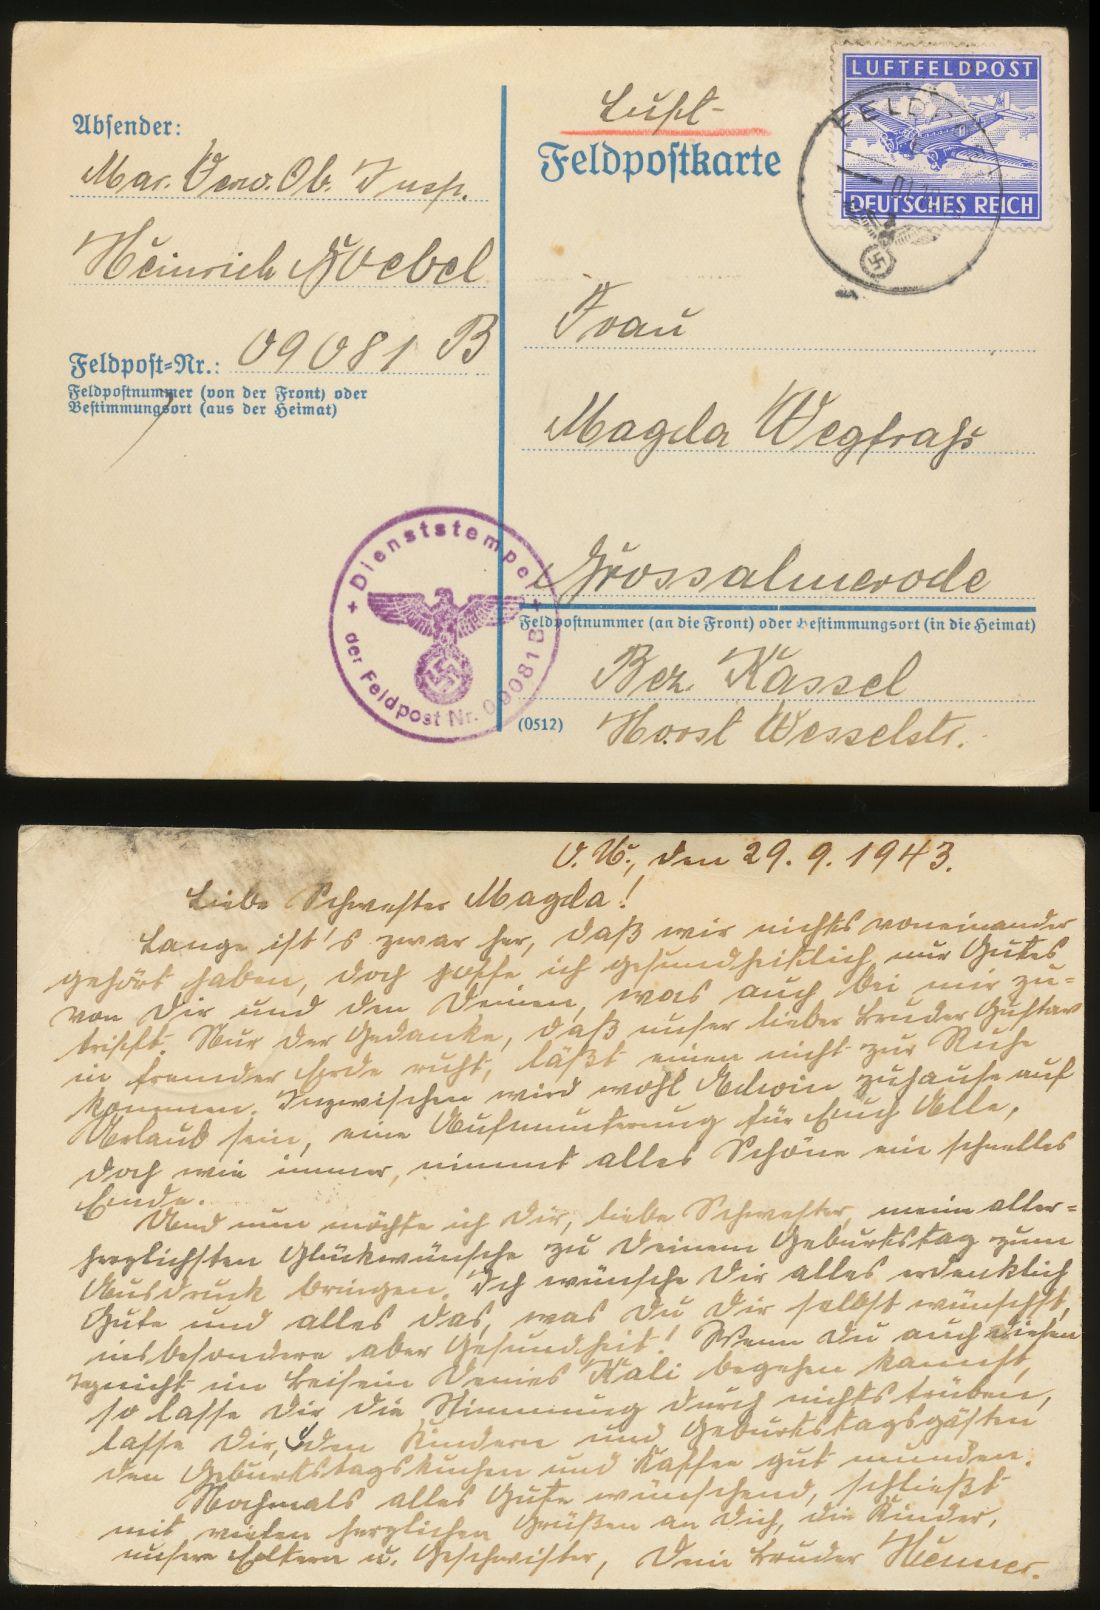 Absender:
Mar. Verw. Ob. Insp.
Heinrich Goebel
Feldpost-Nr.: 09081 B
Feldpostnummer (von der Front) oder
Bestimmungsort (aus der Heimat)
Luft-
Feldpostkarte
LUFTFELDPOST
DEUTSCHES REICH
FELDP
Frau
Magda Wegfraß
Grossalmerode
Feldpostnummer (an die Front) oder Bestimmungsort (in die Heimat)
Bez. Kassel
(0512)
Horst Wesselstr.
+ Dienststempel +
der Feldpost Nr. 09081 B
O. U., den 29. 9. 1943.
Liebe Schwester Magda!
Lange ist's zwar her, daß wir nichts voneinander
gehört haben, doch hoffe ich gesundheitlich nur Gutes
von Dir und den Deinen, was auch bei mir zu-
trifft. Nur der Gedanke, daß unser lieber Bruder Gustav
in fremder Erde ruht, läßt einen nicht zur Ruhe
kommen. Inzwischen wird wohl Edwin zuhause auf
Urlaub sein, eine Aufmunterung für Euch Alle,
doch wie immer, nimmt alles Schöne ein schnelles
Ende.
Und nun möchte ich Dir, liebe Schwester, meine aller-
herzlichsten Glückwünsche zu Deinem Geburtstag zum
Ausdruck bringen. Ich wünsche Dir alles erdenklich
Gute und alles das, was Du Dir selbst wünschst,
insbesondere aber Gesundheit! Wenn Du auch diesen
Tag nicht im Beisein Deines Kali begehen kannst,
so lasse Dir die Stimmung durch nichts trüben,
lasse Dir, den Kindern und Geburtstagsgästen
den Geburtstagskuchen und Kaffee gut munden.
Nochmals alles Gute wünschend, schließt
mit vielen herzlichen Grüßen an Dich, die Kinder,
unsere Eltern u. Geschwister, Dein Bruder Henner.